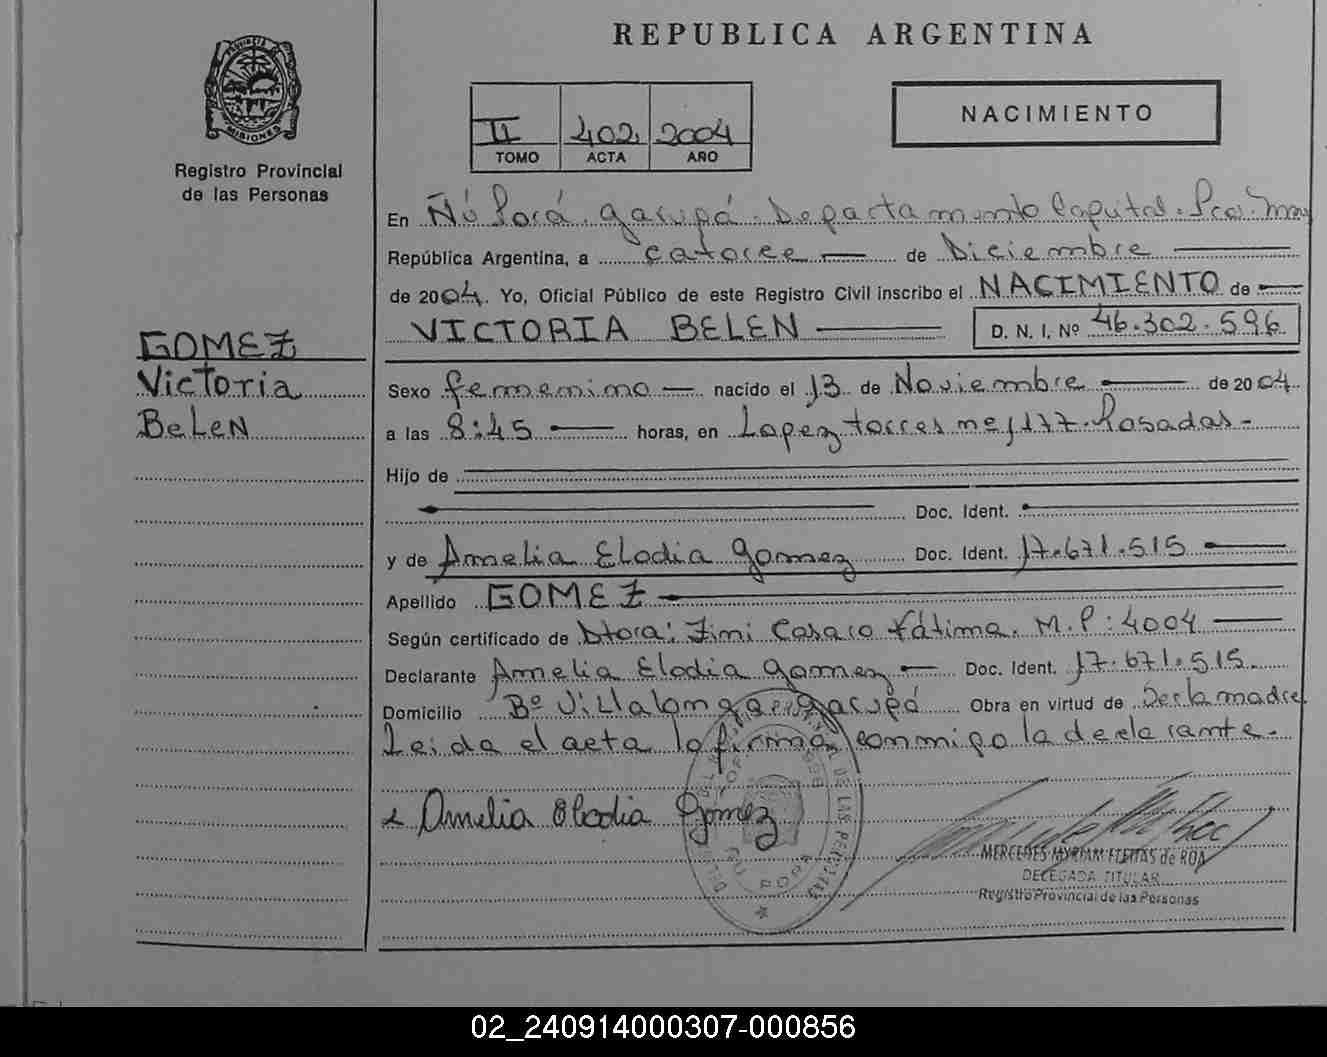 REPUBLICA ARGENTINA
PROVINCIA DE MISIONES
Registro Provincial
de las Personas
II 402 2004
TOMO ACTA AÑO
NACIMIENTO
En Ñú Porá. Garupá. Departamento Capital. Pcia. Mnes
República Argentina, a catorce de Diciembre
de 2004. Yo, Oficial Público de este Registro Civil inscribo el NACIMIENTO de
VICTORIA BELEN D. N. I. Nº 46.302.596
GOMEZ
Victoria
BeLeN
Sexo femenino nacido el 13 de Noviembre de 2004
a las 8:45 horas, en Lopez torres Nº 1177. Posadas-
Hijo de
Doc. Ident.
y de Amelia Elodia Gomez Doc. Ident. 17.671.515
Apellido GOMEZ
Según certificado de Dtora: Zimi Casaro Fátima. M.P: 4004
Declarante Amelia Elodia Gomez Doc. Ident. 17.671.515.
Domicilio Bº Villalonga. Garupá Obra en virtud de Decl. madre
Leida el acta, la firma conmigo la declarante.
Amelia Elodia Gómez
MERCEDES MYRIAM FLEITAS de ROA
DELEGADA TITULAR
Registro Provincial de las Personas
02_240914000307-000856